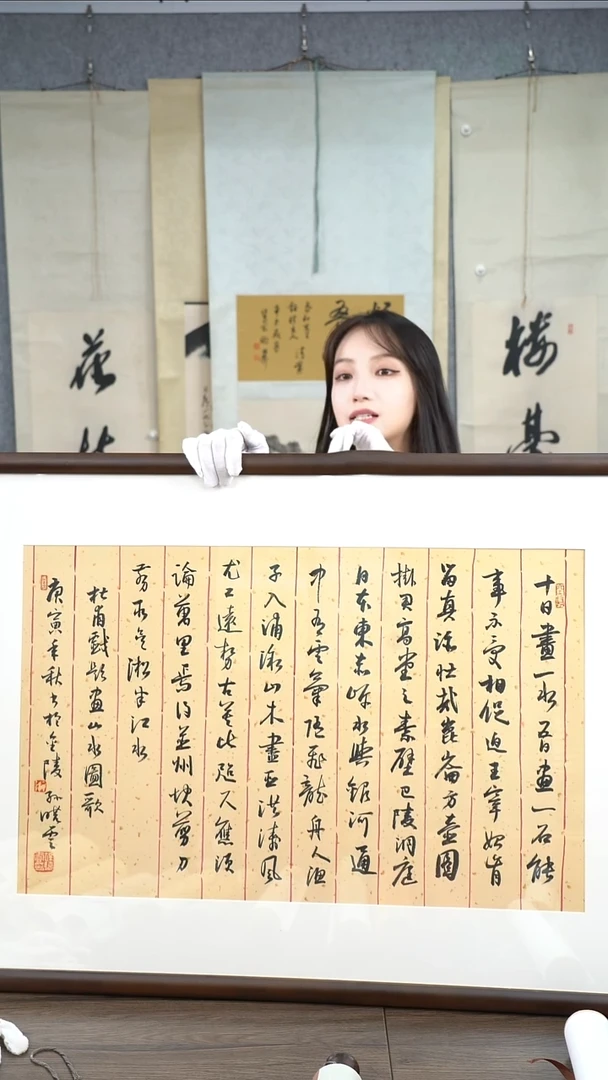 十日畫一水五日画一石能
事不受相促迫王宰始肯
留真迹壮哉崑崙方壺圖
掛君高堂之素壁巴陵洞庭
日本東赤岸水與銀河通
中有雲氣随飛龍舟人漁
子入浦溆山木盡亞洪濤風
尤工遠勢古莫比咫尺應須
論萬里焉得并州快剪刀
剪取吴淞半江水
杜甫戲題畫山水圖歌
庚寅年秋書於金陵孫曉雲
樓
花